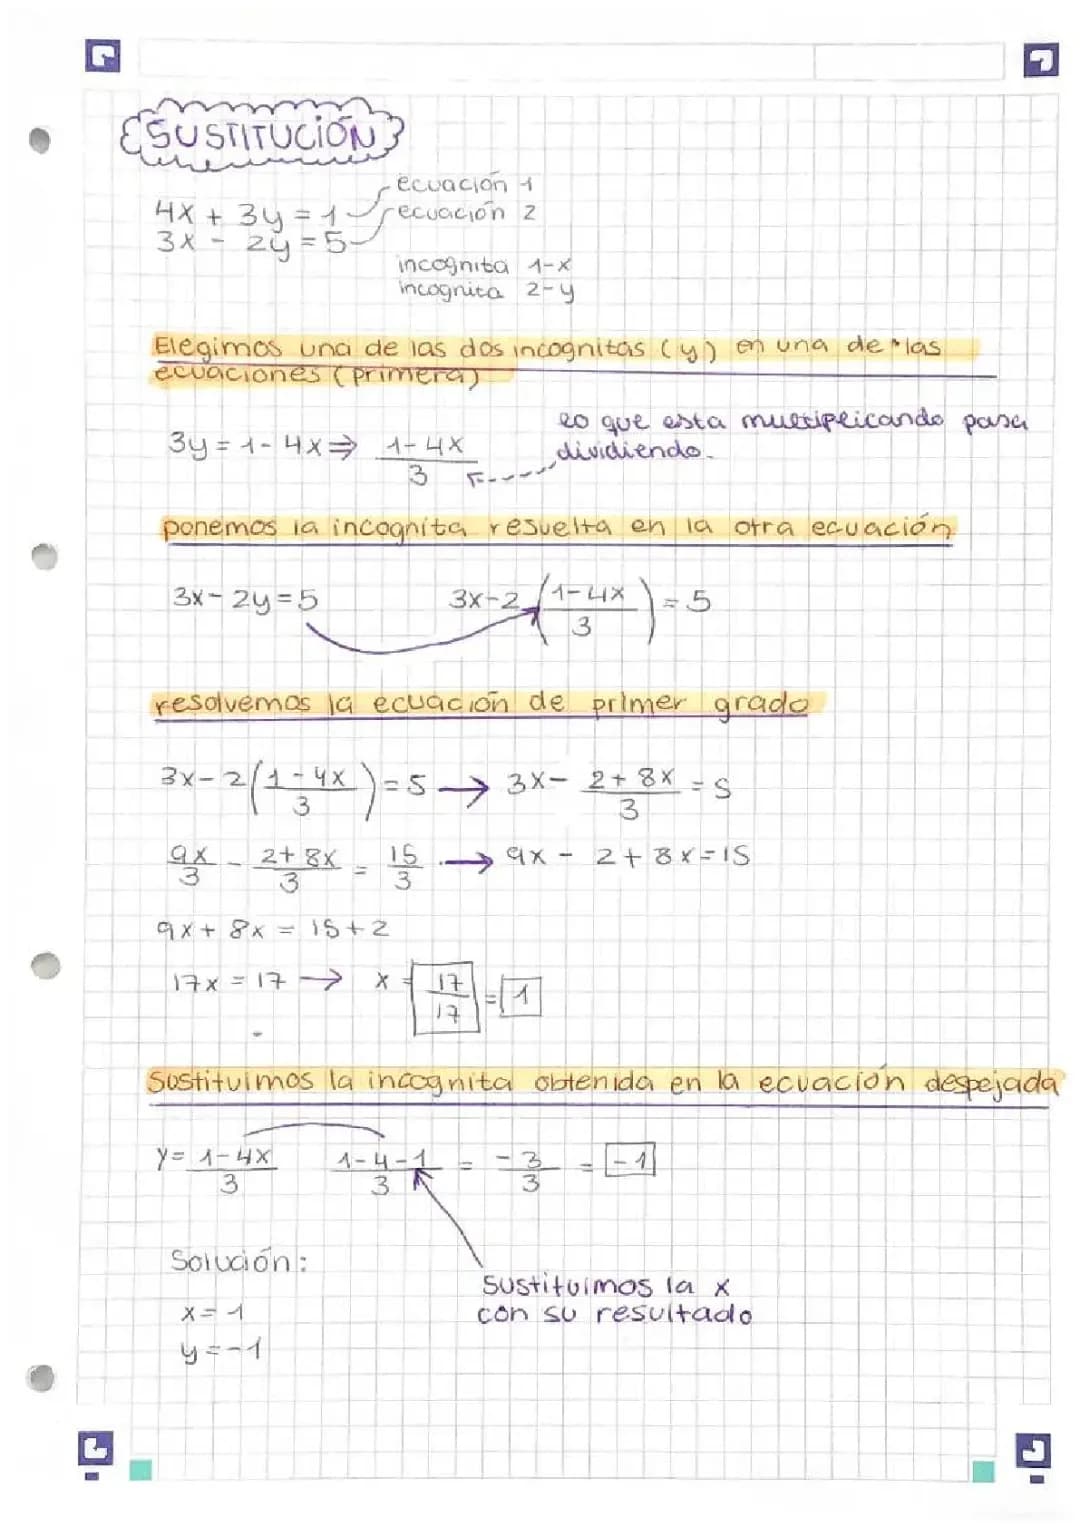 SUSTITUCIÓN
ecuación 1
4x + 3y = 1 ecuación 2
3x - 2y = 5
incognita 1-x
incognita 2-y
Elegimos una de las dos incognitas (y) en una de las
ecuaciones (primera)
lo que esta multiplicando pasa
3y = 1 - 4x ⇒ (1-4x)/3 dividiendo.
ponemos la incognita resuelta en la otra ecuación
3x - 2y = 5 3x-2 ((1-4x)/3) = 5
resolvemos la ecuación de primer grado
3x - 2((1-4x)/3) = 5 → 3x - (2+8x)/3 = 5
9x/3 - (2+8x)/3 = 15/3 → 9x - 2 + 8x = 15
9x + 8x = 15 + 2
17x = 17 → x = 17/17 = 1
Sustituimos la incognita obtenida en la ecuación despejada
y = (1-4x)/3 (1-4-1)/3 = -3/3 = -1
Solución:
Sustituimos la x
x = 1 con su resultado
y = -1